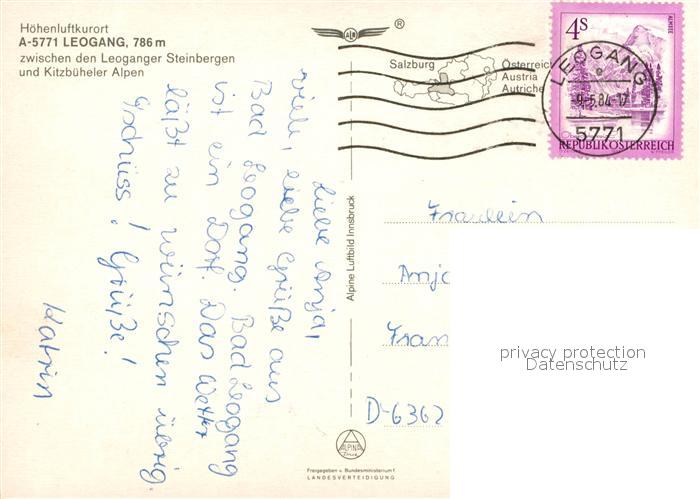 Höhenluftkurort
A-5771 LEOGANG, 786 m
zwischen den Leoganger Steinbergen
und Kitzbüheler Alpen
Liebe Anja,
viele, liebe Grüße aus
Bad Leogang. Bad Leogang
ist ein Dorf. Das Wetter
läßt zu wünschen übrig.
Tschüss! Grüße!
Katrin
ALD
®
Salzburg
Österreich
Austria
Autriche
4S
ALMSEE
REPUBLIK ÖSTERREICH
LEOGANG
-9.-5.84-17
5771
Alpine Luftbild Innsbruck
Fräulein
Anja
Fran
D-6362
privacy protection
Datenschutz
ALPINA
Druck
Freigegeben v. Bundesministerium f.
LANDESVERTEIDIGUNG